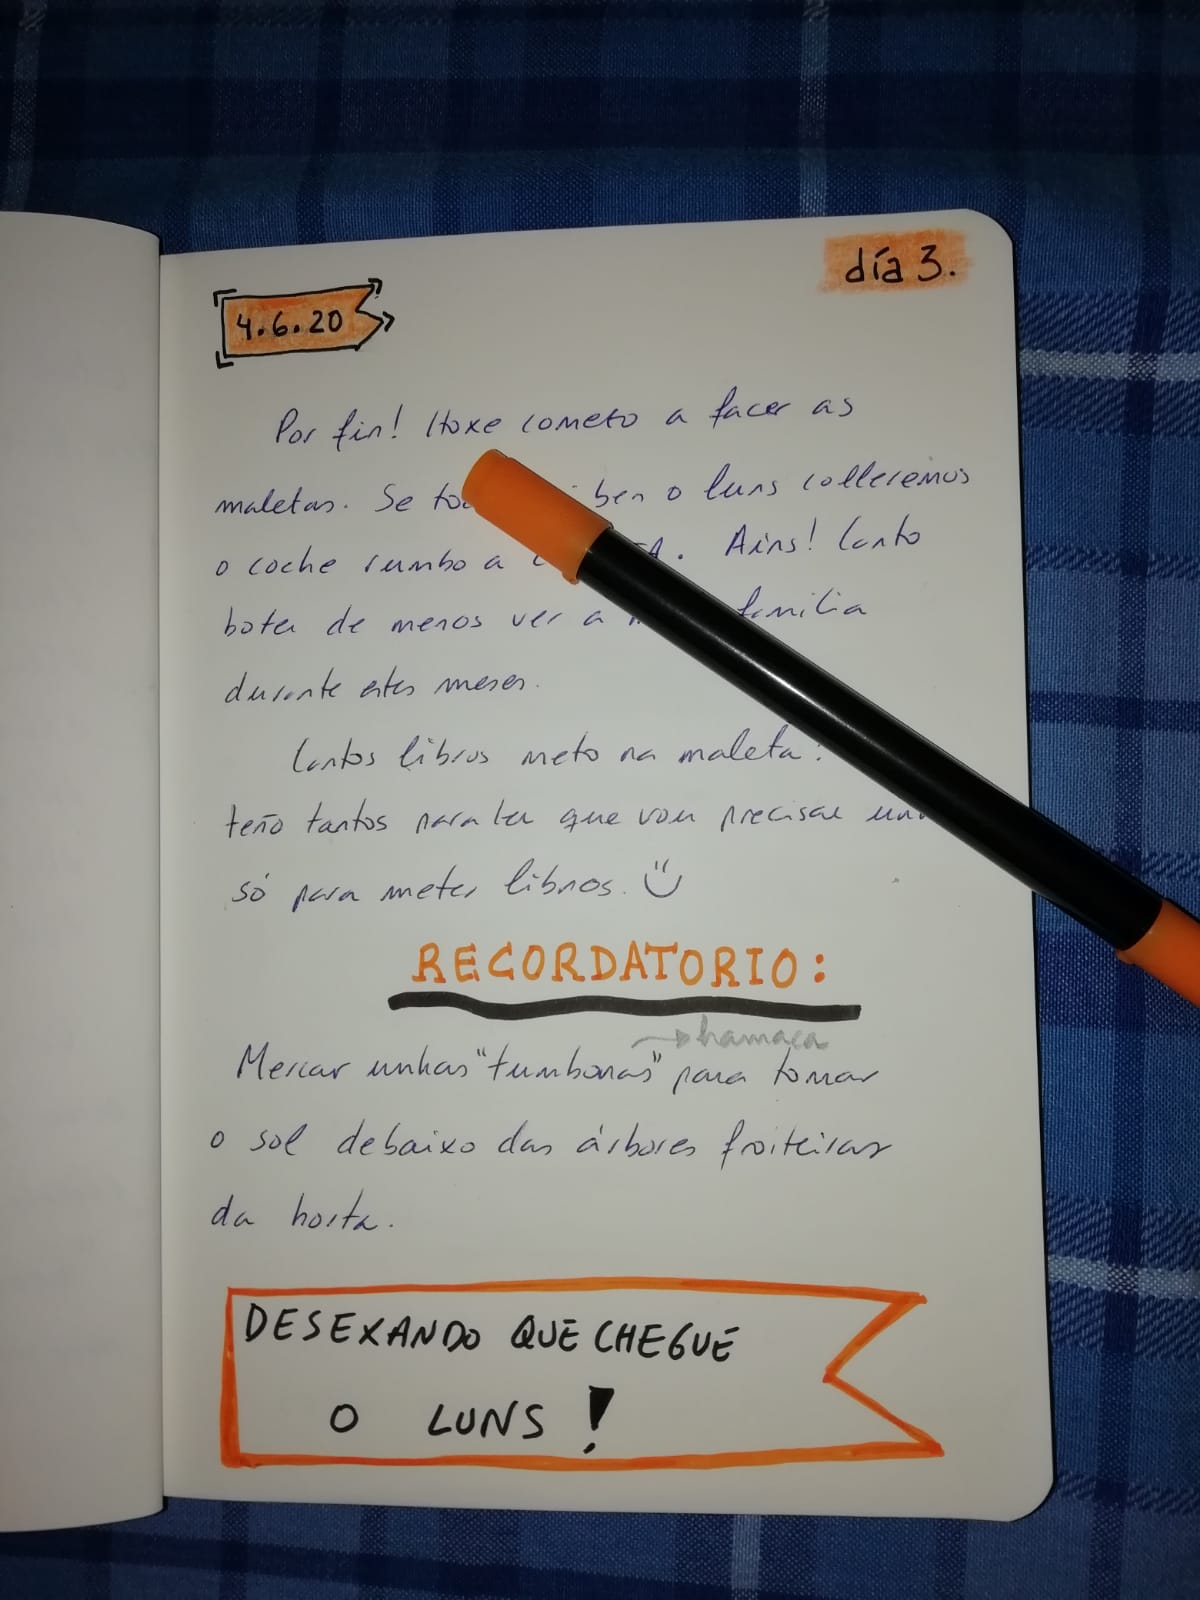 día 3.
4.6.20
Por fin! Hoxe comezo a facer as
maletas. Se ben o luns colleremos
o coche rumbo a Ains! Canto
botei de menos ver a familia
durante estes meses.
Cantos libros meto na maleta?
teño tantos para ler que vou precisar
só para meter libros.
RECORDATORIO:
hamaca
Mercar unhas "tumbonas" para tomar
o sol debaixo das árbores froiteiras
da horta.
DESEXANDO QUE CHEGUE
O LUNS!